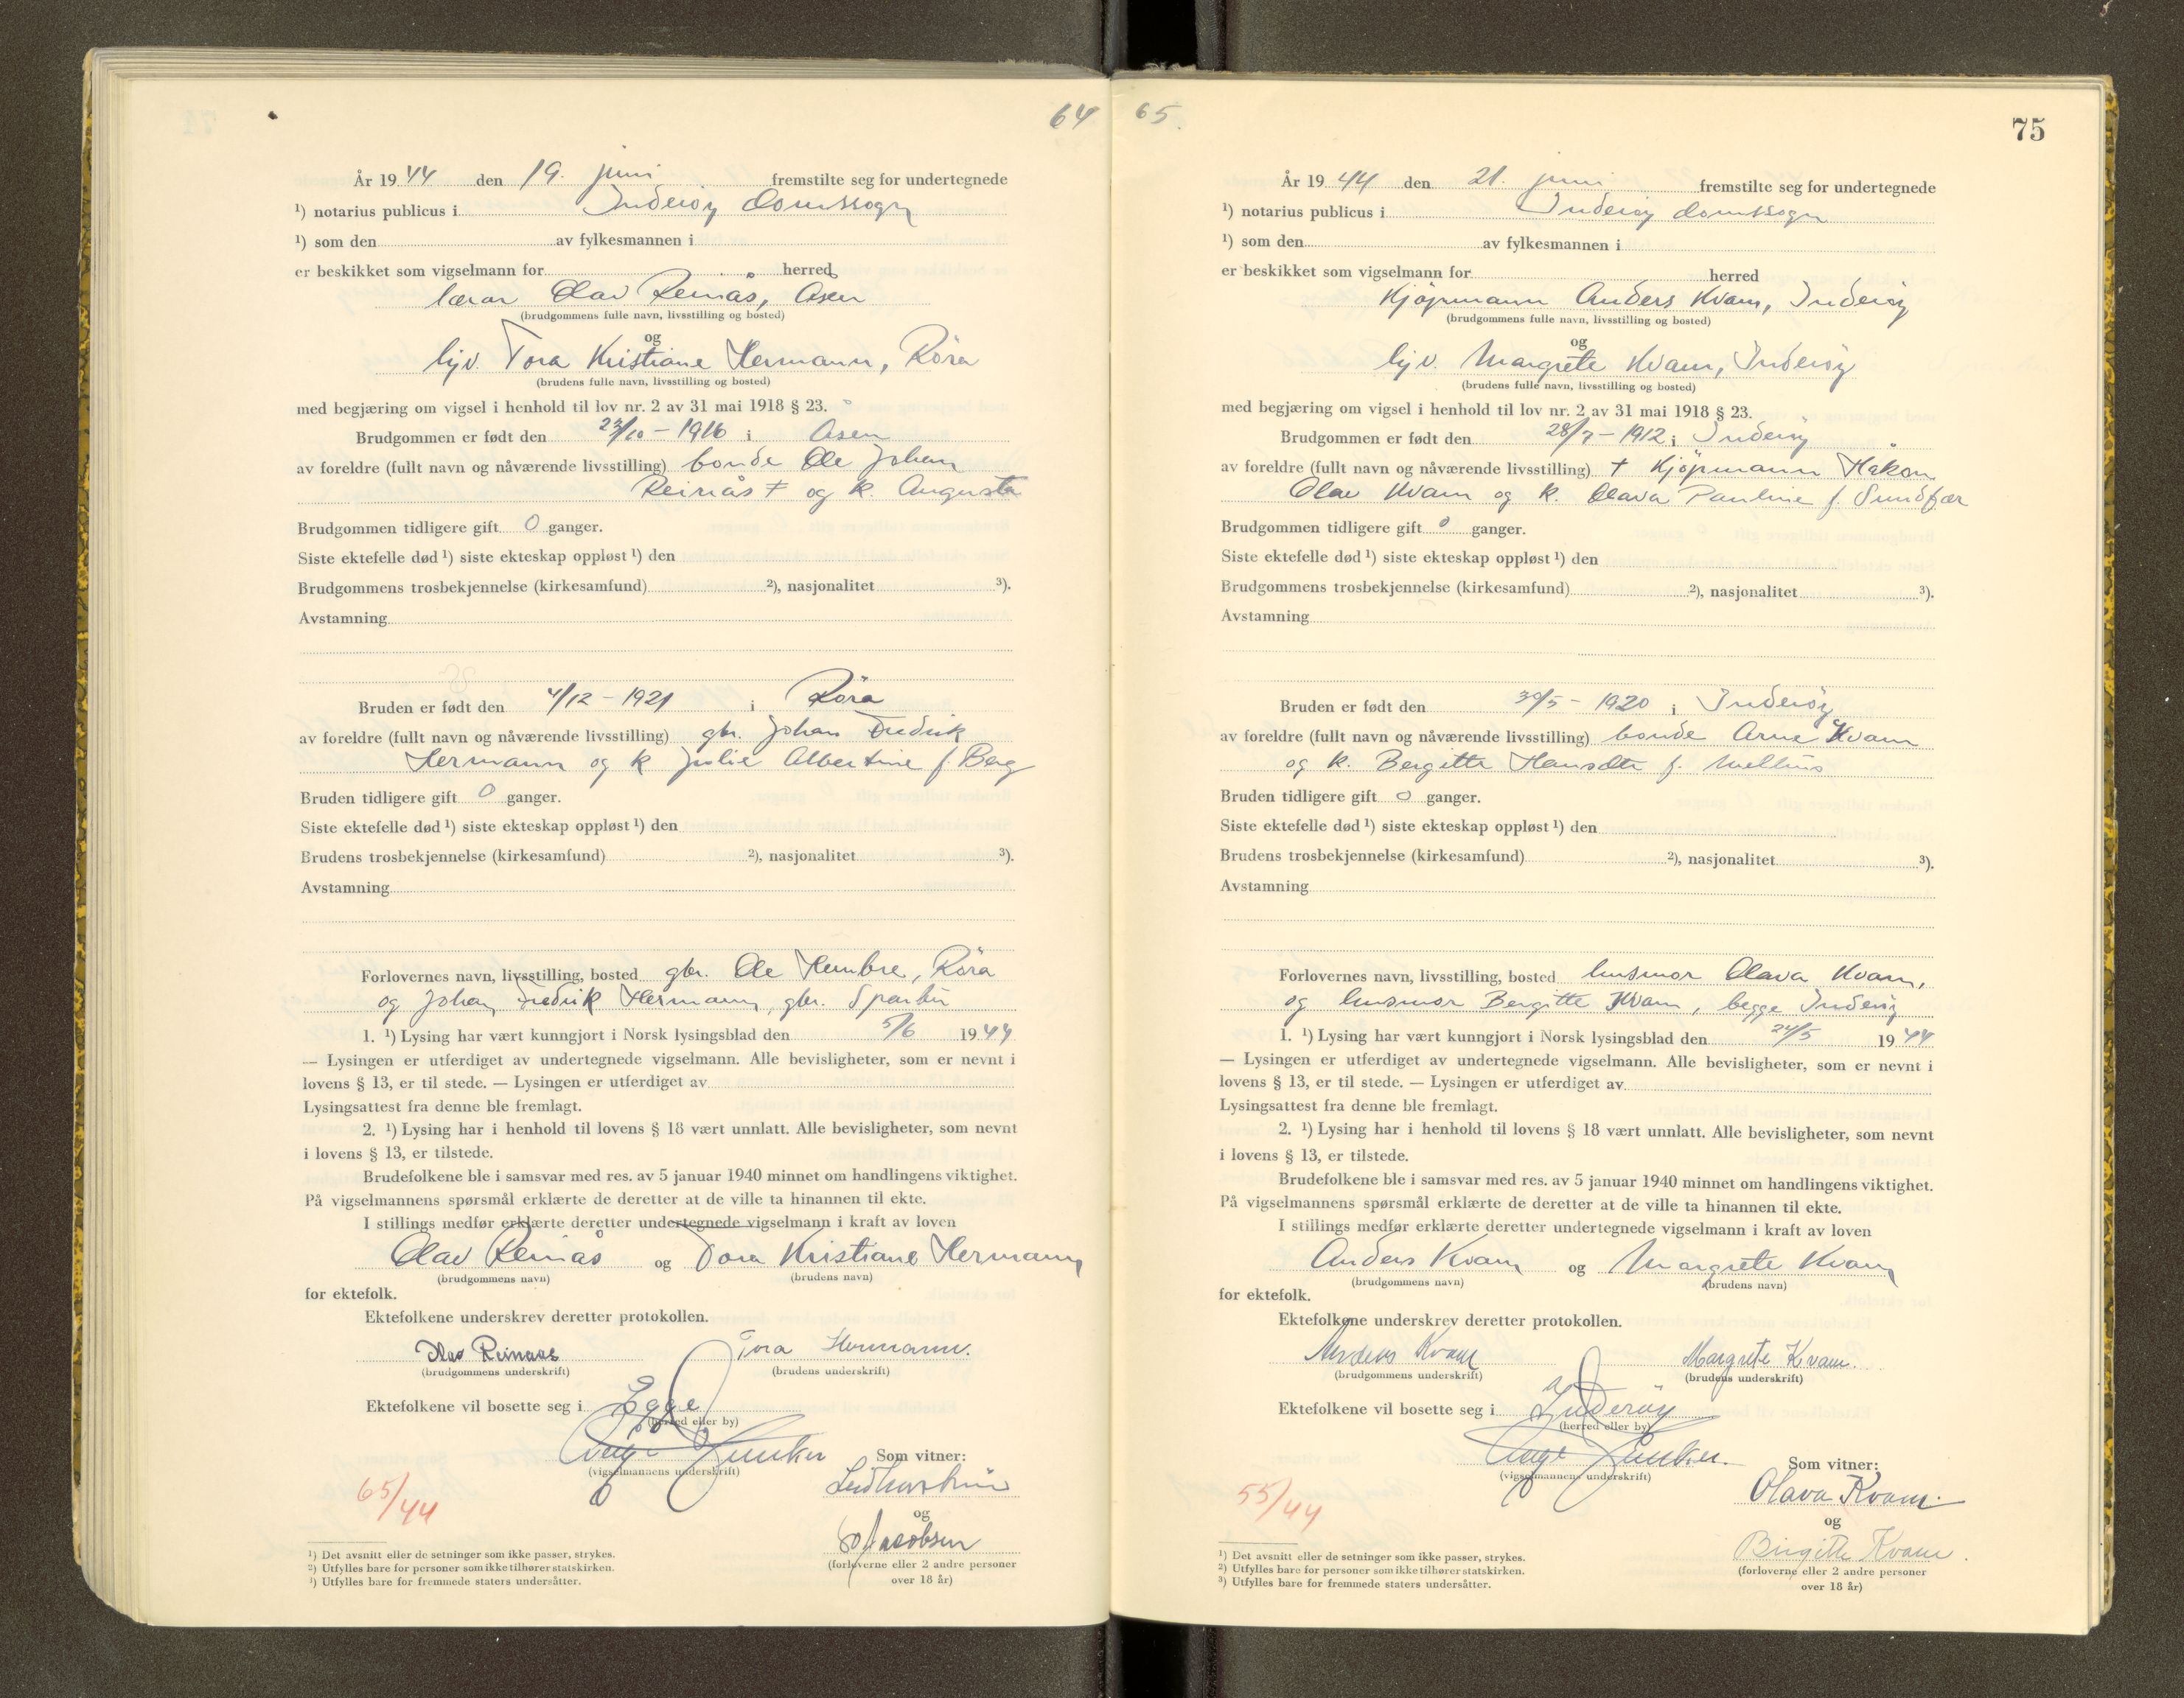 64
År 1944 den 19. juni fremstilte seg for undertegnede
¹) notarius publicus i Inderöy domssogn
¹) som den av fylkesmannen i
er beskikket som vigselmann for herred
lærar Olav Reinås, Åsen
(brudgommens fulle navn, livsstilling og bosted)
og
hjv. Tora Kristiane Hermann, Röra
(brudens fulle navn, livsstilling og bosted)
med begjæring om vigsel i henhold til lov nr. 2 av 31 mai 1918 § 23.
Brudgommen er født den 23/10 - 1916 i Åsen
av foreldre (fullt navn og nåværende livsstilling) bonde Ole Johan
Reinås † og k. Augusta
Brudgommen tidligere gift 0 ganger.
Siste ektefelle død ¹) siste ekteskap oppløst ¹) den
Brudgommens trosbekjennelse (kirkesamfund) ²), nasjonalitet ³).
Avstamning
Bruden er født den 4/12 - 1921 i Röra
av foreldre (fullt navn og nåværende livsstilling) gbr. Johan Fredrik
Hermann og k Julie Albertine f. Berg
Bruden tidligere gift 0 ganger.
Siste ektefelle død ¹) siste ekteskap oppløst ¹) den
Brudens trosbekjennelse (kirkesamfund) ²), nasjonalitet ³).
Avstamning
Forlovernes navn, livsstilling, bosted gbr. Ole Hembre, Röra
og Johan Fredrik Hermann, gbr. Sparbu
1. ¹) Lysing har vært kunngjort i Norsk lysingsblad den 5/6 1944
— Lysingen er utferdiget av undertegnede vigselmann. Alle bevisligheter, som er nevnt i
lovens § 13, er til stede. — Lysingen er utferdiget av
Lysingsattest fra denne ble fremlagt.
2. ¹) Lysing har i henhold til lovens § 18 vært unnlatt. Alle bevisligheter, som nevnt
i lovens § 13, er tilstede.
Brudefolkene ble i samsvar med res. av 5 januar 1940 minnet om handlingens viktighet.
På vigselmannens spørsmål erklærte de deretter at de ville ta hinannen til ekte.
I stillings medfør erklærte deretter undertegnede vigselmann i kraft av loven
Olav Reinås og Tora Kristiane Hermann
(brudgommens navn) (brudens navn)
for ektefolk.
Ektefolkene underskrev deretter protokollen.
Olav Reinaas Tora Hermann.
(brudgommens underskrift) (brudens underskrift)
Ektefolkene vil bosette seg i Egge
(herred eller by)
(vigselmannens underskrift)
Som vitner:
og
Jacobsen
(forloverne eller 2 andre personer
over 18 år)
65/44
¹) Det avsnitt eller de setninger som ikke passer, strykes.
²) Utfylles bare for personer som ikke tilhører statskirken.
³) Utfylles bare for fremmede staters undersåtter.
65.
75
År 1944 den 21. juni fremstilte seg for undertegnede
¹) notarius publicus i Inderöy domssogn
¹) som den av fylkesmannen i
er beskikket som vigselmann for herred
Kjöpmann Anders Kvam, Inderöy
(brudgommens fulle navn, livsstilling og bosted)
og
hjv. Margrete Kvam, Inderöy
(brudens fulle navn, livsstilling og bosted)
med begjæring om vigsel i henhold til lov nr. 2 av 31 mai 1918 § 23.
Brudgommen er født den 28/7 - 1912 i Inderöy
av foreldre (fullt navn og nåværende livsstilling) † Kjöpmann Håkon
Olav Kvam og k. Olava Pauline f. Sundfær
Brudgommen tidligere gift 0 ganger.
Siste ektefelle død ¹) siste ekteskap oppløst ¹) den
Brudgommens trosbekjennelse (kirkesamfund) ²), nasjonalitet ³).
Avstamning
Bruden er født den 30/5 - 1920 i Inderöy
av foreldre (fullt navn og nåværende livsstilling) bonde Arne Kvam
og k. Bergitte Hansdtr f.
Bruden tidligere gift 0 ganger.
Siste ektefelle død ¹) siste ekteskap oppløst ¹) den
Brudens trosbekjennelse (kirkesamfund) ²), nasjonalitet ³).
Avstamning
Forlovernes navn, livsstilling, bosted husmor Olava Kvam,
og husmor Bergitte Kvam, begge Inderöy
1. ¹) Lysing har vært kunngjort i Norsk lysingsblad den 24/5 1944
— Lysingen er utferdiget av undertegnede vigselmann. Alle bevisligheter, som er nevnt i
lovens § 13, er til stede. — Lysingen er utferdiget av
Lysingsattest fra denne ble fremlagt.
2. ¹) Lysing har i henhold til lovens § 18 vært unnlatt. Alle bevisligheter, som nevnt
i lovens § 13, er tilstede.
Brudefolkene ble i samsvar med res. av 5 januar 1940 minnet om handlingens viktighet.
På vigselmannens spørsmål erklærte de deretter at de ville ta hinannen til ekte.
I stillings medfør erklærte deretter undertegnede vigselmann i kraft av loven
Anders Kvam og Margrete Kvam
(brudgommens navn) (brudens navn)
for ektefolk.
Ektefolkene underskrev deretter protokollen.
Anders Kvam Margrete Kvam.
(brudgommens underskrift) (brudens underskrift)
Ektefolkene vil bosette seg i Inderöy
(herred eller by)
(vigselmannens underskrift)
Som vitner:
Olava Kvam.
og
Birgitte Kvam.
(forloverne eller 2 andre personer
over 18 år)
55/44
¹) Det avsnitt eller de setninger som ikke passer, strykes.
²) Utfylles bare for personer som ikke tilhører statskirken.
³) Utfylles bare for fremmede staters undersåtter.